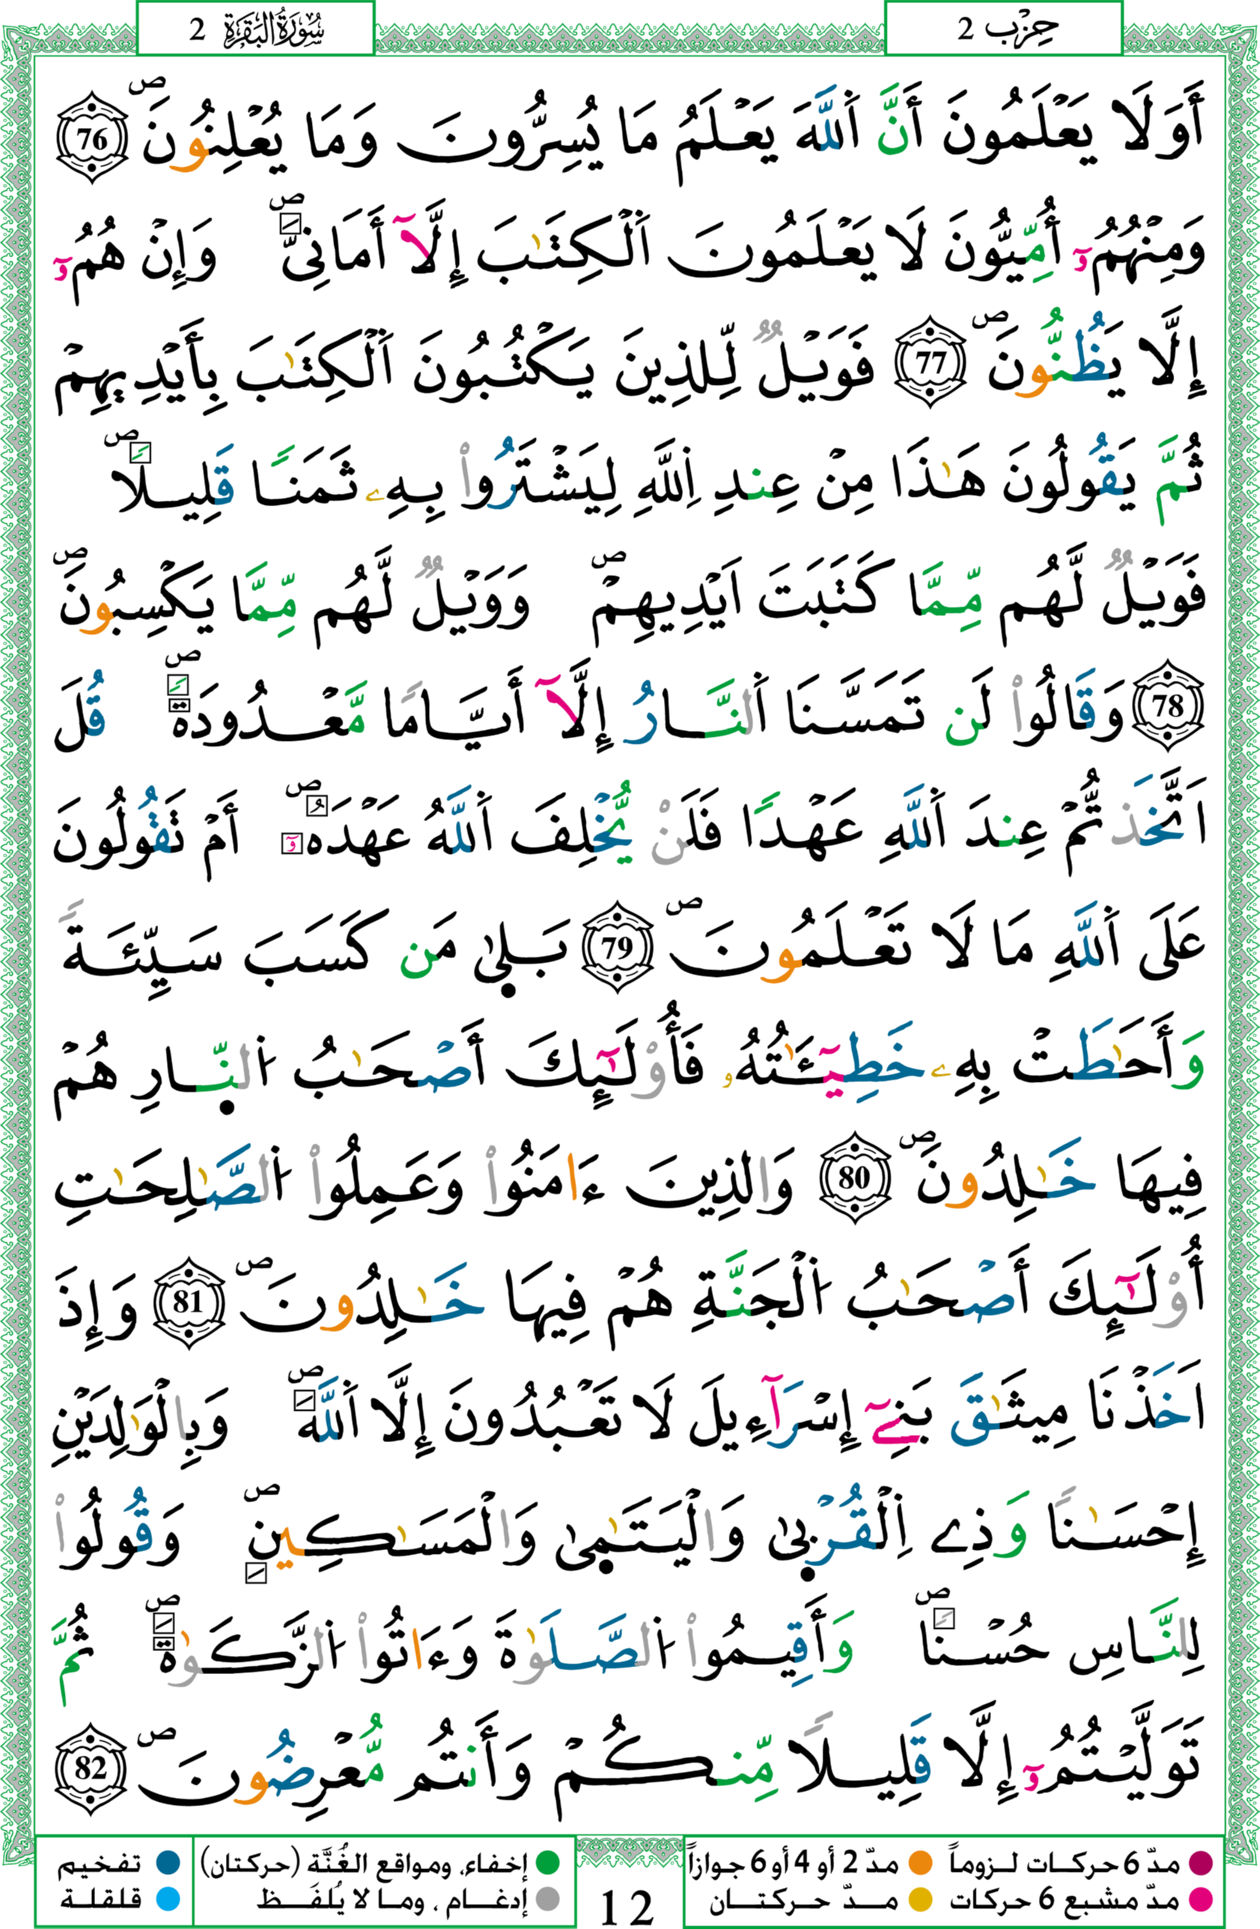 سُورَةُ البَقَرَةِ 2
حِزْب 2
أَوَلَا يَعْلَمُونَ أَنَّ اَ۬للَّهَ يَعْلَمُ مَا يُسِرُّونَ وَمَا يُعْلِنُونَۖ 76
وَمِنْهُمُۥٓ أُمِّيُّونَ لَا يَعْلَمُونَ اَ۬لْكِتَٰبَ إِلَّآ أَمَانِيَّۖ وَإِنْ هُمُۥٓ
إِلَّا يَظُنُّونَۖ 77 فَوَيْلٞ لِّلذِينَ يَكْتُبُونَ اَ۬لْكِتَٰبَ بِأَيْدِيهِمْ
ثُمَّ يَقُولُونَ هَٰذَا مِنْ عِندِ اِ۬للَّهِ لِيَشْتَرُواْ بِهِۦ ثَمَنًا قَلِيلًاۖ
فَوَيْلٞ لَّهُم مِّمَّا كَتَبَتَ اَيْدِيهِمْۖ وَوَيْلٞ لَّهُم مِّمَّا يَكْسِبُونَۖ
78 وَقَالُواْ لَن تَمَسَّنَا اَ۬لنَّارُ إِلَّآ أَيَّامًا مَّعْدُودَةًۖ قُلَ
اَتَّخَذتُّمْ عِندَ اَ۬للَّهِ عَهْدًا فَلَنْ يُّخْلِفَ اَ۬للَّهُ عَهْدَهُۥٓۖ أَمْ تَقُولُونَ
عَلَى اَ۬للَّهِ مَا لَا تَعْلَمُونَۖ 79 بَلٜىٰ مَن كَسَبَ سَيِّئَةً
وَأَحَٰطَتْ بِهِۦ خَطِيٓـَٰٔتُهُۥ فَأُوْلَٰٓئِكَ أَصْحَٰبُ اُ۬لنّ۪ارِ هُمْ
فِيهَا خَٰلِدُونَۖ 80 وَالذِينَ ءَامَنُواْ وَعَمِلُواْ اُ۬لصَّٰلِحَٰتِ
أُوْلَٰٓئِكَ أَصْحَٰبُ اُ۬لْجَنَّةِ هُمْ فِيهَا خَٰلِدُونَۖ 81 وَإِذَ
اَخَذْنَا مِيثَٰقَ بَنِےٓ إِسْرَآءِيلَ لَا تَعْبُدُونَ إِلَّا اَ۬للَّهَۖ وَبِالْوَٰلِدَيْنِ
إِحْسَٰنًا وَذِے اِ۬لْقُرْبٜىٰ وَالْيَتَٰمٜىٰ وَالْمَسَٰكِينِۖ وَقُولُواْ
لِلنَّاسِ حُسْنًاۖ وَأَقِيمُواْ اُ۬لصَّلَوٰةَ وَءَاتُواْ اُ۬لزَّكَوٰةَۖ ثُمَّ
تَوَلَّيْتُمُۥٓ إِلَّا قَلِيلًا مِّنكُمْ وَأَنتُم مُّعْرِضُونَۖ 82
مدّ 6 حركات لـزوماً مدّ 2 أو 4 أو 6 جوازاً
مدّ مشبع 6 حركات مدّ حركتان
إخفاء، ومواقع الغُنَّة (حركتان) تفخيم
إدغام ، وما لا يُلفَظ قلقلة
12